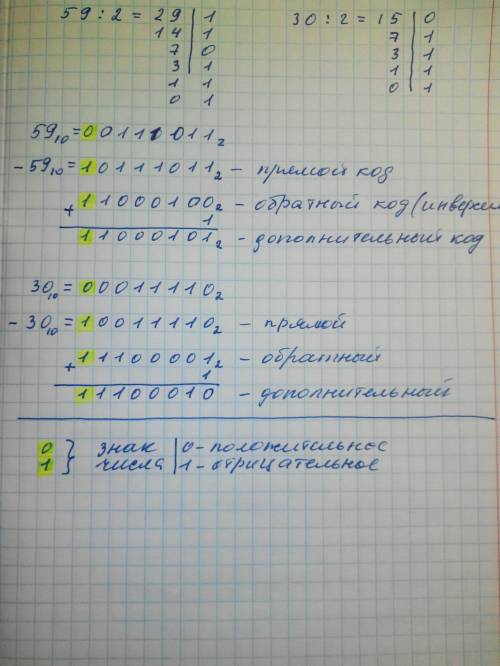 59 : 2 = 29 | 1
14 | 1
7 | 0
3 | 1
1 1
0 1
30 : 2 = 15 | 0
7 | 1
3 | 1
1 | 1
0 | 1
59₁₀ = 00111011₂
- 59₁₀ = 10111011₂ - прямой код
+ 11000100₂ - обратный код (инверси
1
11000101₂ - дополнительный код
30₁₀ = 00011110₂
- 30₁₀ = 10011110₂ - прямой
+ 11100001₂ - обратный
1
11100010 - дополнительный
0 } знак | 0 - положительное
1 } числа | 1 - отрицательное